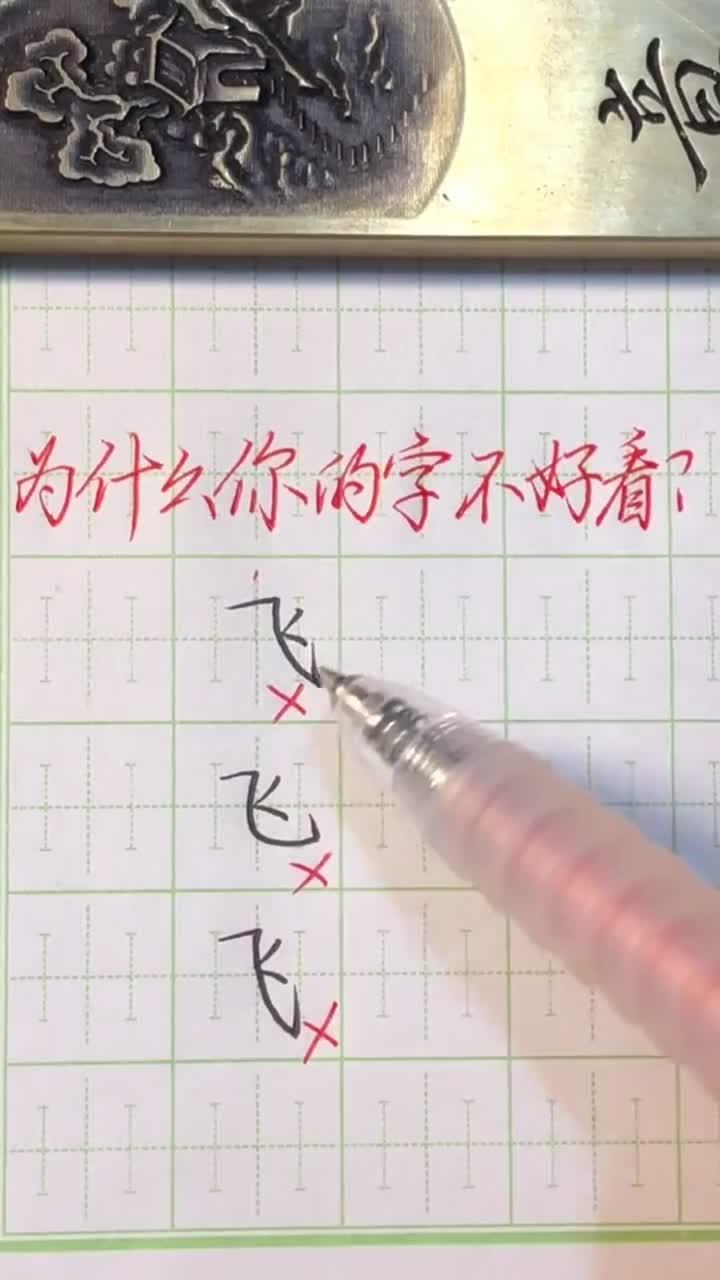 为什么你的字不好看?
飞
×
飞
×
飞
×